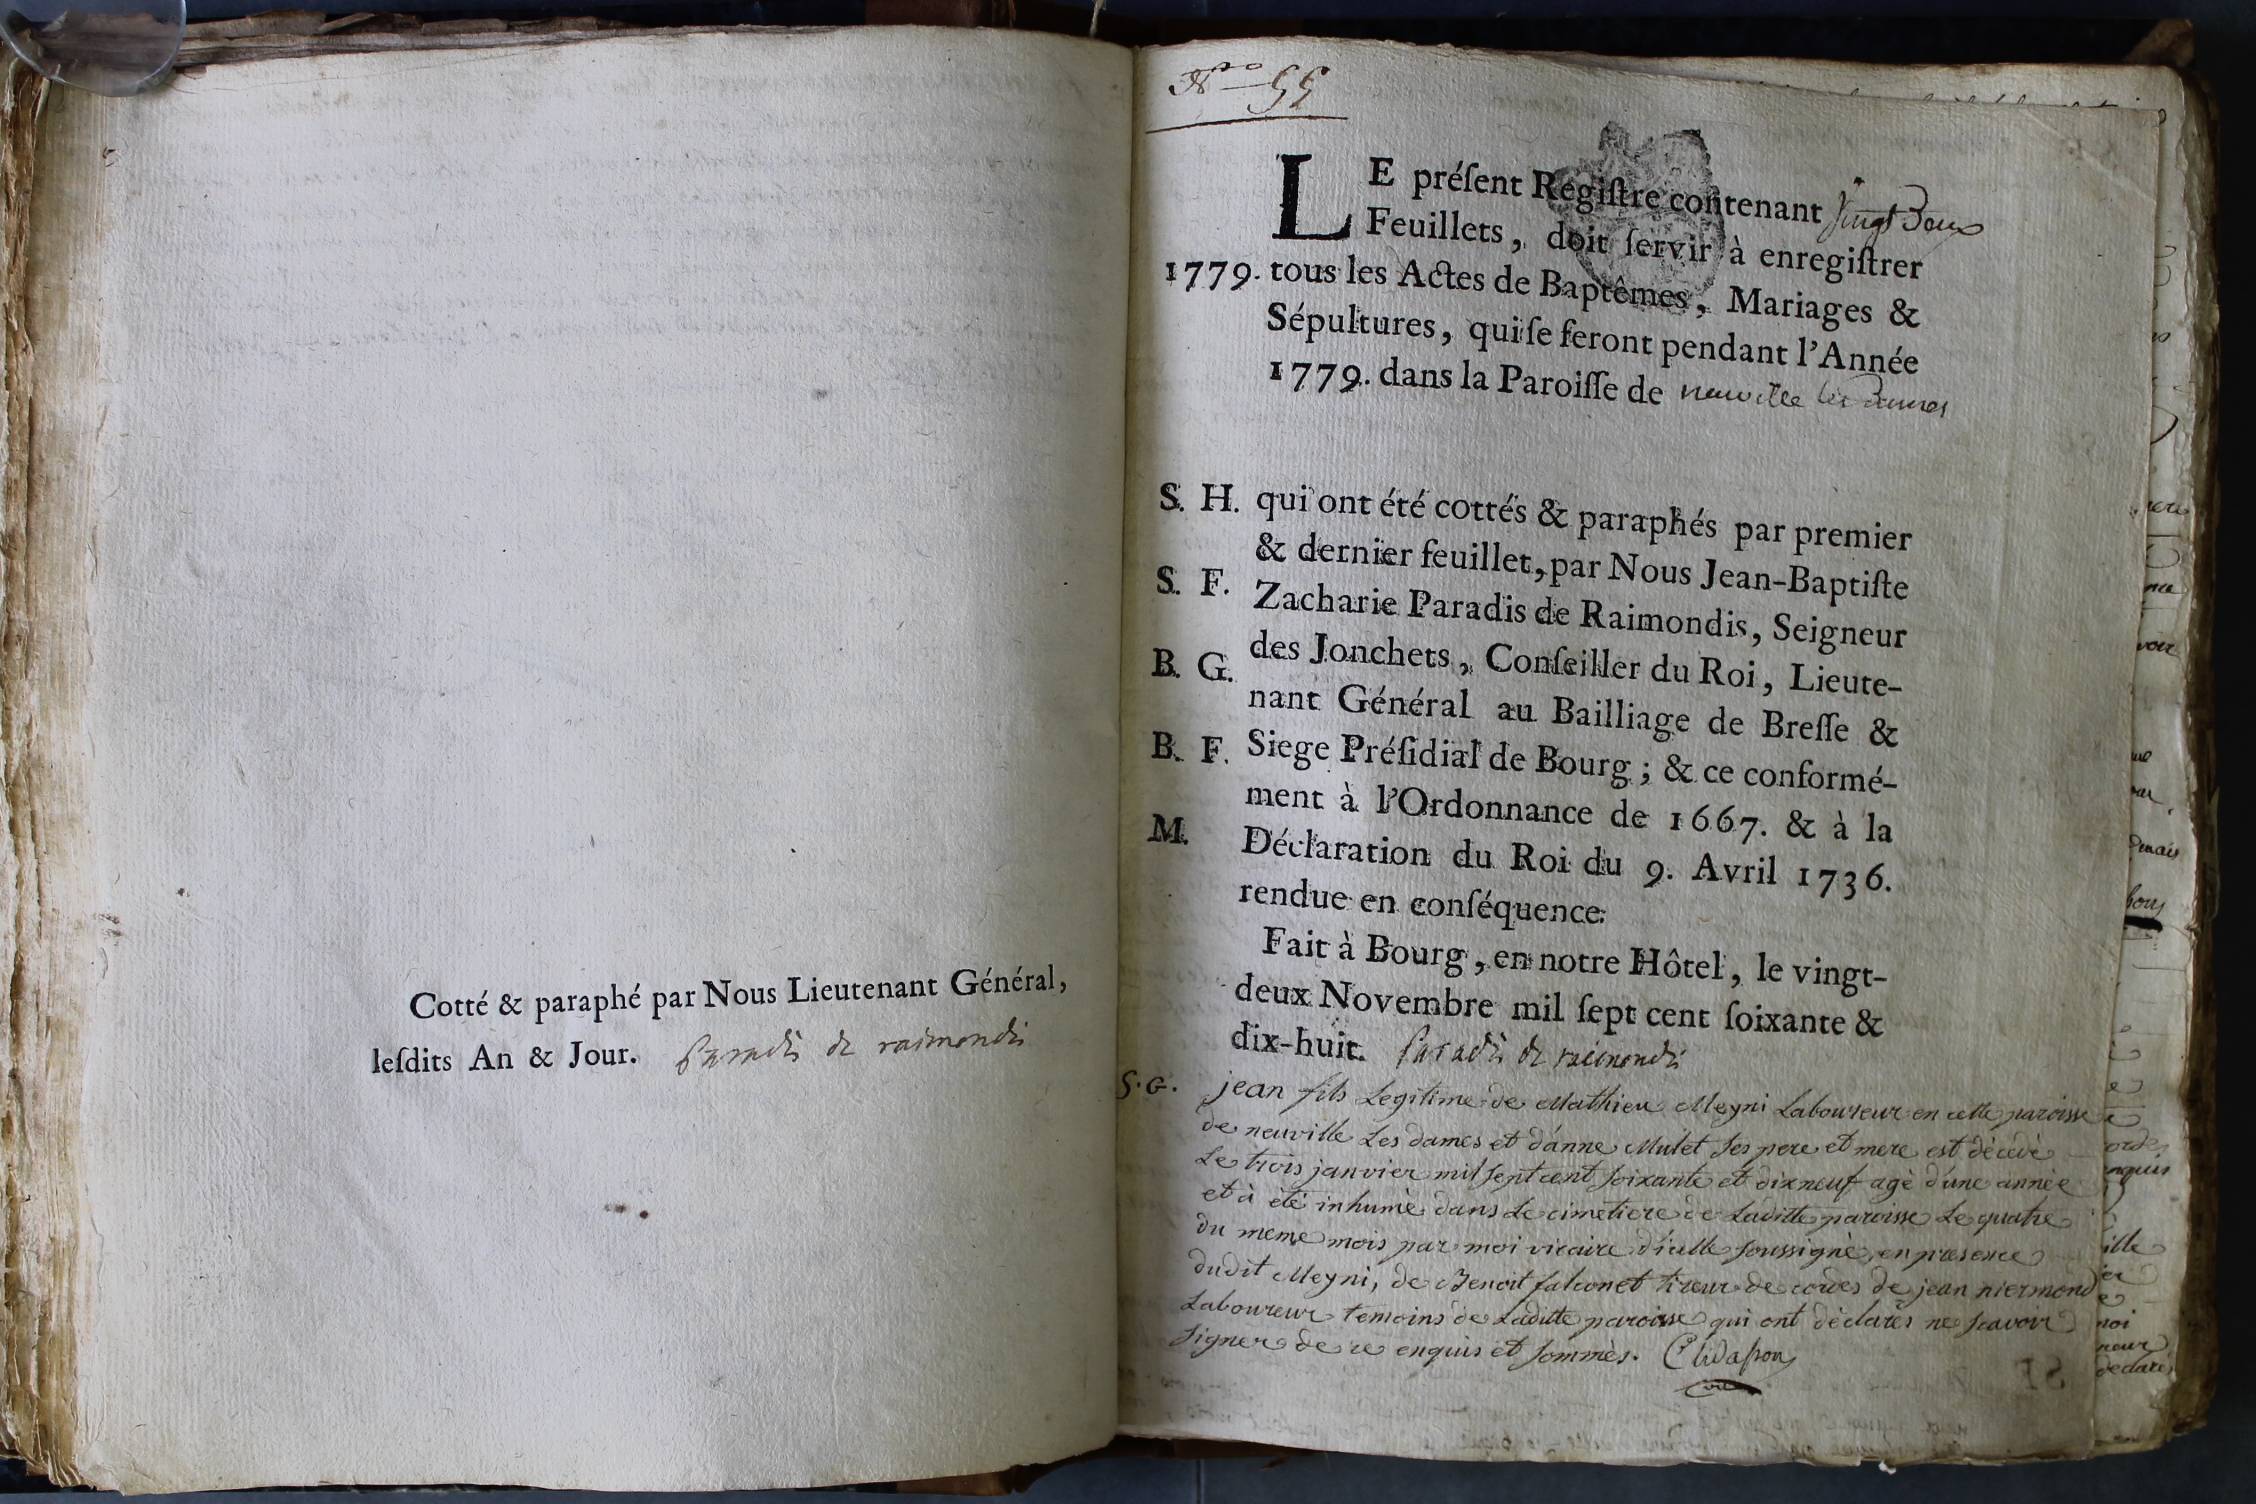 Cotté & paraphé par Nous Lieutenant Général,
leſdits An & Jour. Paradis de raimondis
Nro 55
LE préſent Regiſtre contenant vingt Deux
Feuillets, doit ſervir à enregiſtrer
1779. tous les Actes de Baptêmes, Mariages &
Sépultures, qui ſe feront pendant l'Année
1779. dans la Paroiſſe de neuville les Dames
S. H. qui ont été cottés & paraphés par premier
& dernier feuillet, par Nous Jean-Baptiſte
S. F. Zacharie Paradis de Raimondis, Seigneur
des Jonchets, Conſeiller du Roi, Lieute-
B. G. nant Général au Bailliage de Breſſe &
B. F. Siege Préſidial de Bourg; & ce conformé-
ment à l'Ordonnance de 1667. & à la
M. Déclaration du Roi du 9. Avril 1736.
rendue en conſéquence.
Fait à Bourg, en notre Hôtel, le vingt-
deux Novembre mil ſept cent ſoixante &
dix-huit. Paradis de raimondis
S. G. jean fils Legitime de Mathieu Meyni Laboureur en cette paroisse
de neuville Les dames et d'anne Mulet Ses pere et mere est dècèdè
Le trois janvier mil Sept cent Soixante et dixneuf agè d'une annèe
et à ètè inhumè dans Le cimetiere de Laditte paroisse Le quatre
du meme mois par moi vicaire d'icelle Soussignè, en presence
dudit Meyni, de Benoit falconet tireur de cordes de jean niermond
Laboureur temoins de Laditte paroisse qui ont dèclarès ne Scavoir
Signer de ce enquis et Sommès.
vic